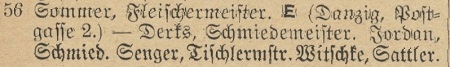 56 Sommer, Fleischermeister. E (Danzig, Post-
gasse 2.) — Derks, Schmiedemeister. Jordan,
Schmied. Senger, Tischlermstr. Witschke, Sattler.